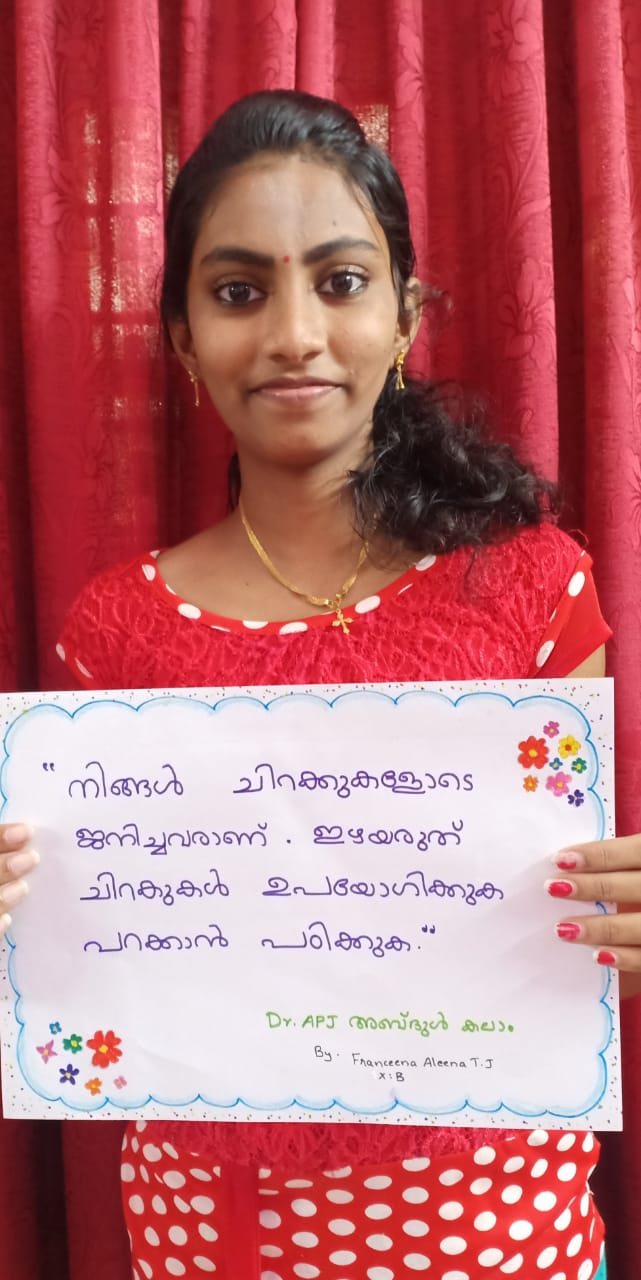 " നിങ്ങൾ ചിറക്കുകളോടെ
ജനിച്ചവരാണ് . ഇഴയരുത്
ചിറകുകൾ ഉപയോഗിക്കുക
പറക്കാൻ പഠിക്കുക."
Dr. APJ അബ്ദുൾ കലാം
By. Franceena Aleena T.J
X:B